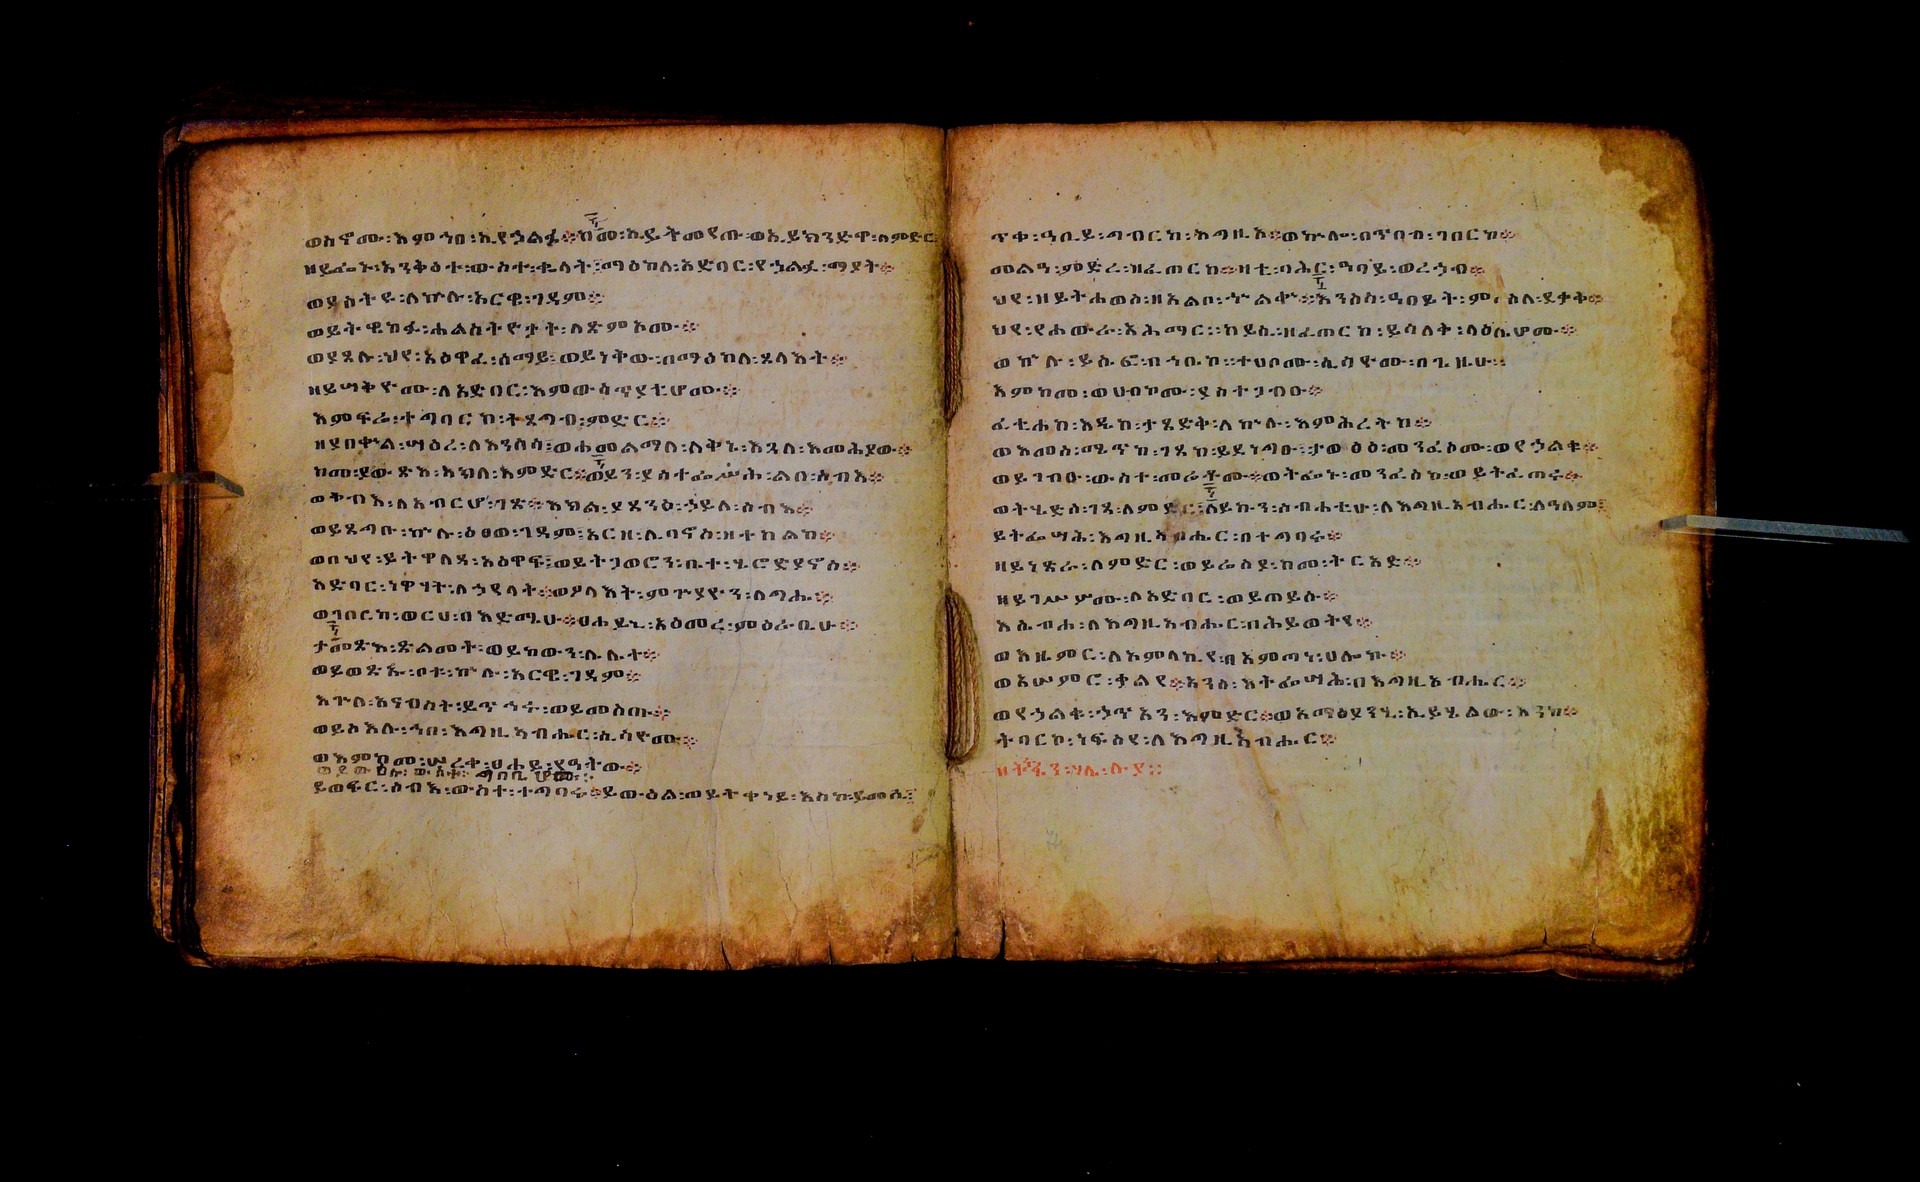 ወሰኖሙ፡እምኀበ፡ኢየኃልፉ፨ከመ፡ኢይትመየጡ፡ወኢይክንድዋ፡ለምድር
ዘይፌኑ፡አንቅዕተ፡ውስተ፡ቈላት፤ማዕከለ፡አድባር፡የኃልፉ፡ማያት፨
ወያሰትዩ፡ለኵሉ፡አርዌ፡ገዳም፨
ወይትዌከፉ፡ሐለስትዮታት፡ለጽምኦሙ፨
ወይጼልሉ፡ህየ፡አዕዋፈ፡ሰማይ፤ወይነቅው፡በማዕከለ፡ጸላእት፨
ዘይሠቅዮሙ፡ለአድባር፡እምውሳጥያቲሆሙ፨
እምፍሬ፡ተግባርከ፡ትጸግብ፡ምድር፨
ዘያበቍል፡ሣዕረ፡ለእንስሳ፤ወሐመልማለ፡ለቅኔ፡እጓለ፡እመሕያው፨
ከመ፡ያውጽእ፡እክለ፡እምድር፨ወይን፡ያስተፌሥሕ፡ልበ፡ሰብእ፨
ወቅብእ፡ለአብርሆ፡ገጽ፨እክል፡ያጸንዕ፡ኃይለ፡ሰብእ፨
ወይጸግቡ፡ኵሉ፡ዕፀወ፡ገዳም፤አርዘ፡ሊባኖስ፡ዘተከልከ፨
ወበህየ፡ይትዋለዳ፡አዕዋፍ፤ወይትጋወሮን፡ቤተ፡ሄሮድያኖስ፨
አድባር፡ነዋኃት፡ለኃየላት፨ወጾላእት፡ምጕያዮን፡ለግሔ፨
ወገበርከ፡ወርኀ፡በእድሜሁ፨ፀሐይኒ፡አእመረ፡ምዕራቢሁ፨
ታመጽእ፡ጽልመት፡ወይከውን፡ሌሊት፨
ወይወጽኡ፡ቦቱ፡ኵሉ፡አርዌ፡ገዳም፨
እጕለ፡አናብስት፡ይጥኅሩ፡ወይመስጡ፨
ወይስእሉ፡ኀበ፡እግዚአብሔር፡ሲሳዮሙ፨
ወእምከመ፡ሠረቀ፡ፀሐይ፡የዓትው፨
ወይውዕሉ፡ውስተ፡ግበቢሆሙ፨
ይወፍር፡ሰብእ፡ውስተ፡ተግባሩ፨ይውዕል፡ወይትቀነይ፡እስከ፡ይመሲ፤
ጥቀ፡ዓቢይ፡ግብርከ፡እግዚኦ፨ወኵሎ፡በጥበብ፡ገበርከ፨
መልዓ፡ምድረ፡ዘፈጠርከ፨ዛቲ፡ባሕር፡ዓባይ፡ወረኃብ፨
ህየ፡ዘይትሐወስ፡ዘአልቦ፡ኍልቍ፨እንስሳ፡ዓበይት፡ምስለ፡ደቃቅ፨
ህየ፡የሐውራ፡አሕማር፤ከይሲ፡ዘፈጠርከ፡ይሳለቅ፡ላዕሌሆሙ፨
ወኵሉ፡ይሴፎ፡በኀቤከ፤ተሀቦሙ፡ሲሳዮሙ፡በጊዜሁ፨
እምከመ፡ወሀብኮሙ፡ያስተጋብኡ፨
ፈቲሐከ፡እዴከ፡ታጸድቅ፡ለኵሉ፡እምሕረትከ፨
ወእመሰ፡ሜጥከ፡ገጸከ፡ይደነግፁ፤ታወፅዕ፡መንፈሶሙ፡ወየኃልቁ፨
ወይገብኡ፡ውስተ፡መሬቶሙ፨ወትፌኑ፡መንፈሰከ፡ወይትፈጠሩ፨
ወትሄድስ፡ገጻ፡ለምድር፤ለይኩን፡ስብሐቲሁ፡ለእግዚአብሔር፡ለዓለም፤
ይትፌሣሕ፡እግዚአብሔር፡በተግባሩ፨
ዘይነጽራ፡ለምድር፡ወይሬስያ፡ከመ፡ትርአድ፨
ዘይገሥሦሙ፡ለአድባር፡ወይጠይሱ፨
እሴብሖ፡ለእግዚአብሔር፡በሕይወትየ፨
ወእዜምር፡ለአምላኪየ፡በአምጣነ፡ሀሎኩ፨
ወአሠምሮ፡ቃልየ፨አንሰ፡እትፌሣሕ፡በእግዚአብሔር፨
ወየኃልቁ፡ኃጥአን፡እምድር፨ወአማፅያንሂ፡ኢይሄልው፡እንከ፨
ትባርኮ፡ነፍስየ፡ለእግዚአብሔር፨